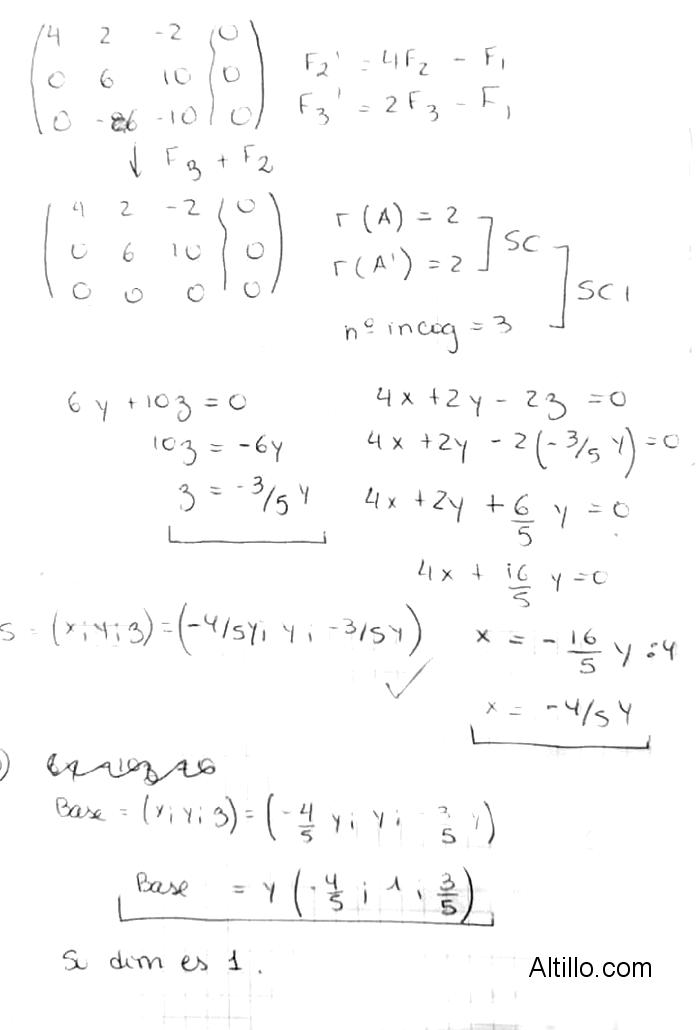 4 2 -2 | 0 F₂' = 4F₂ - F₁
0 6 10 | 0 F₃' = 2F₃ - F₁
0 -6 -10 | 0
↓ F₃ + F₂
4 2 -2 | 0 r(A) = 2
0 6 10 | 0 r(A') = 2 ] SC
0 0 0 | 0 nº incog = 3 ] SCI
6y + 10z = 0
10z = -6y
z = -3/5 y
4x + 2y - 2z = 0
4x + 2y - 2(-3/5 y) = 0
4x + 2y + 6/5 y = 0
4x + 16/5 y = 0
x = -16/5 y : 4
x = -4/5 y
S = (x; y; z) = (-4/5y; y; -3/5y) ✓
Base = (x; y; z) = (-4/5 y; y; -3/5 y)
Base = y (-4/5 ; 1 ; 3/5)
Su dim es 1.
Altillo.com